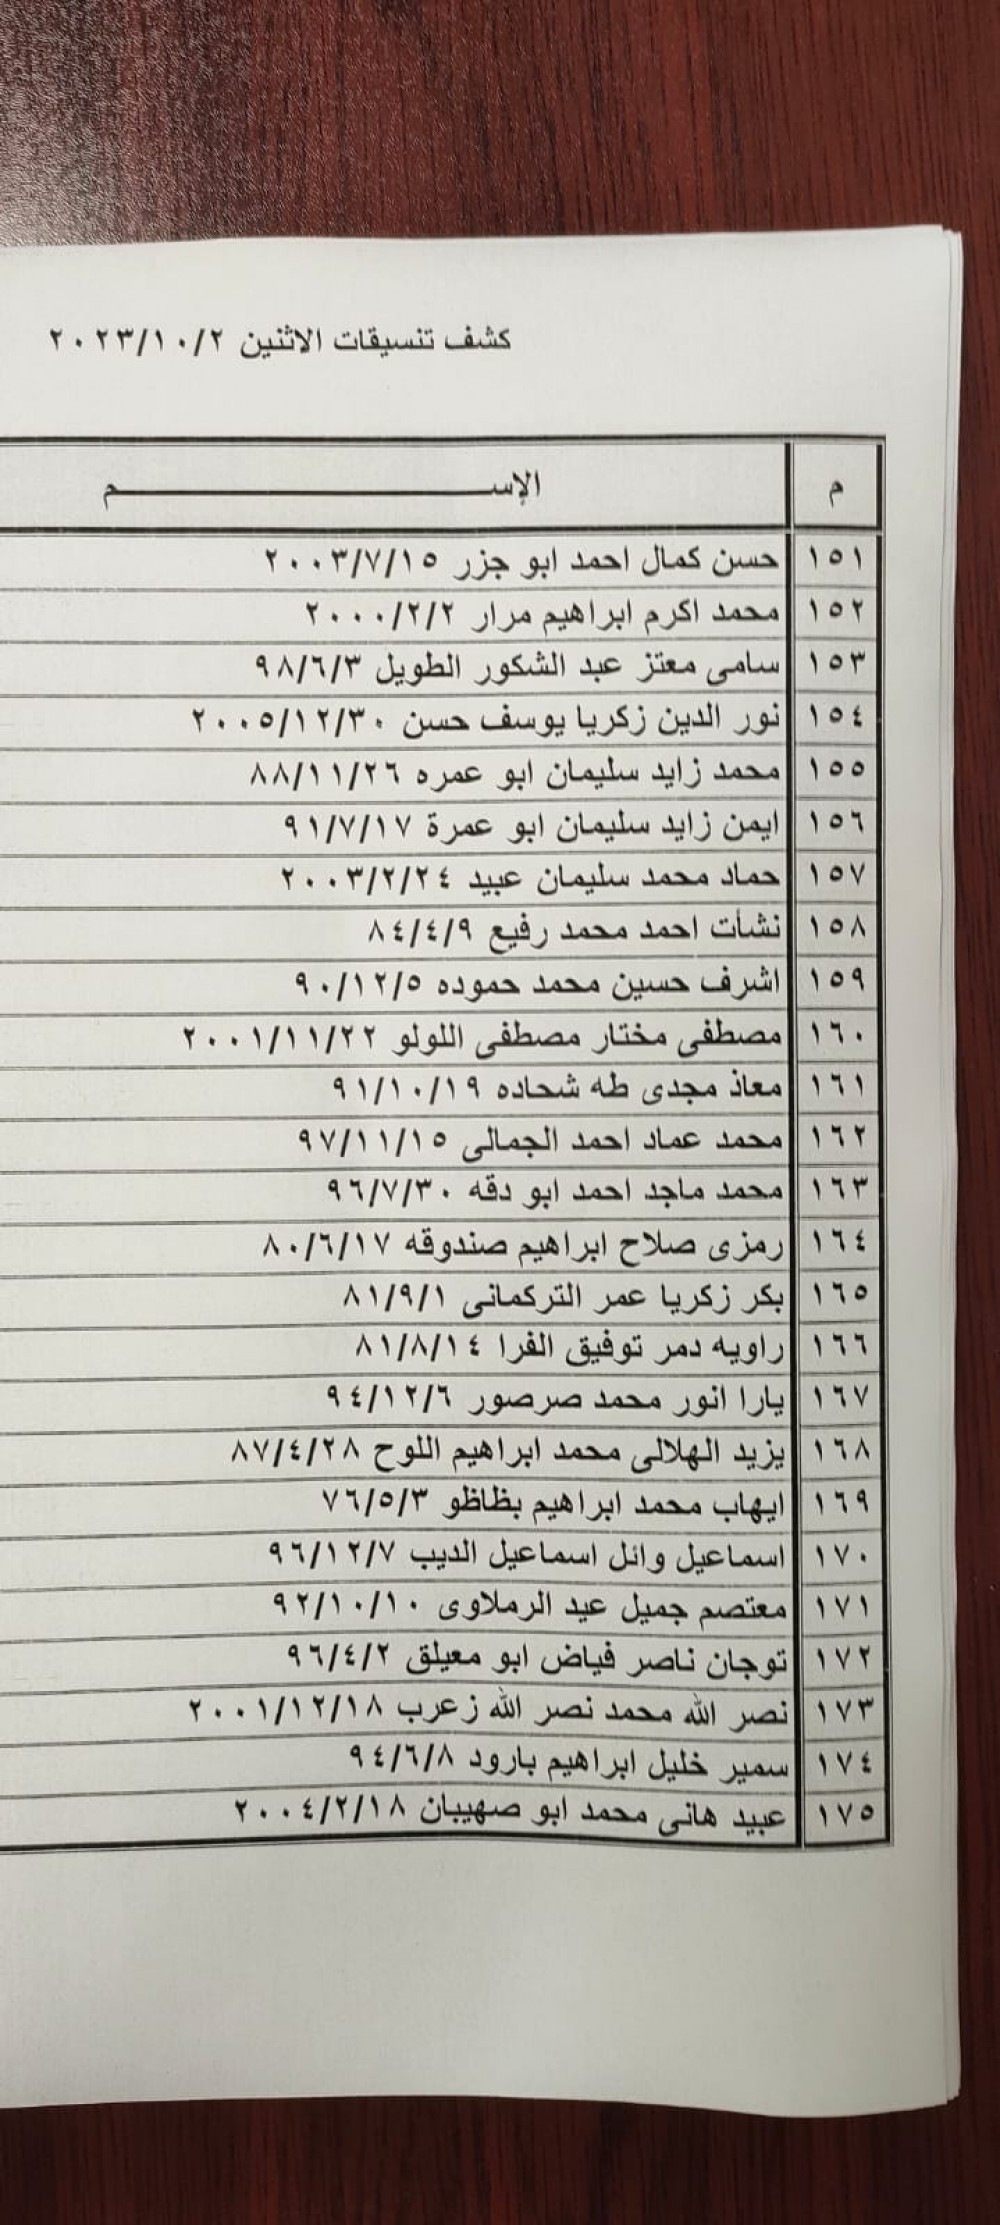 كشف تنسيقات الاثنين ٢٠٢٣/١٠/٢
م الإســـــــــــــــــــم
١٥١ حسن كمال احمد ابو جزر ٢٠٠٣/٧/١٥
١٥٢ محمد اكرم ابراهيم مرار ٢٠٠٠/٢/٢
١٥٣ سامى معتز عبد الشكور الطويل ٩٨/٦/٣
١٥٤ نور الدين زكريا يوسف حسن ٢٠٠٥/١٢/٣٠
١٥٥ محمد زايد سليمان ابو عمره ٨٨/١١/٢٦
١٥٦ ايمن زايد سليمان ابو عمرة ٩١/٧/١٧
١٥٧ حماد محمد سليمان عبيد ٢٠٠٣/٢/٢٤
١٥٨ نشأت احمد محمد رفيع ٨٤/٤/٩
١٥٩ اشرف حسين محمد حموده ٩٠/١٢/٥
١٦٠ مصطفى مختار مصطفى اللولو ٢٠٠١/١١/٢٢
١٦١ معاذ مجدى طه شحاده ٩١/١٠/١٩
١٦٢ محمد عماد احمد الجمالى ٩٧/١١/١٥
١٦٣ محمد ماجد احمد ابو دقه ٩٦/٧/٣٠
١٦٤ رمزى صلاح ابراهيم صندوقه ٨٠/٦/١٧
١٦٥ بكر زكريا عمر التركمانى ٨١/٩/١
١٦٦ راويه دمر توفيق الفرا ٨١/٨/١٤
١٦٧ يارا انور محمد صرصور ٩٤/١٢/٦
١٦٨ يزيد الهلالى محمد ابراهيم اللوح ٨٧/٤/٢٨
١٦٩ ايهاب محمد ابراهيم بظاظو ٧٦/٥/٣
١٧٠ اسماعيل وائل اسماعيل الديب ٩٦/١٢/٧
١٧١ معتصم جميل عيد الرملاوى ٩٢/١٠/١٠
١٧٢ توجان ناصر فياض ابو معيلق ٩٦/٤/٢
١٧٣ نصر الله محمد نصر الله زعرب ٢٠٠١/١٢/١٨
١٧٤ سمير خليل ابراهيم بارود ٩٤/٦/٨
١٧٥ عبيد هانى محمد ابو صهيبان ٢٠٠٤/٢/١٨